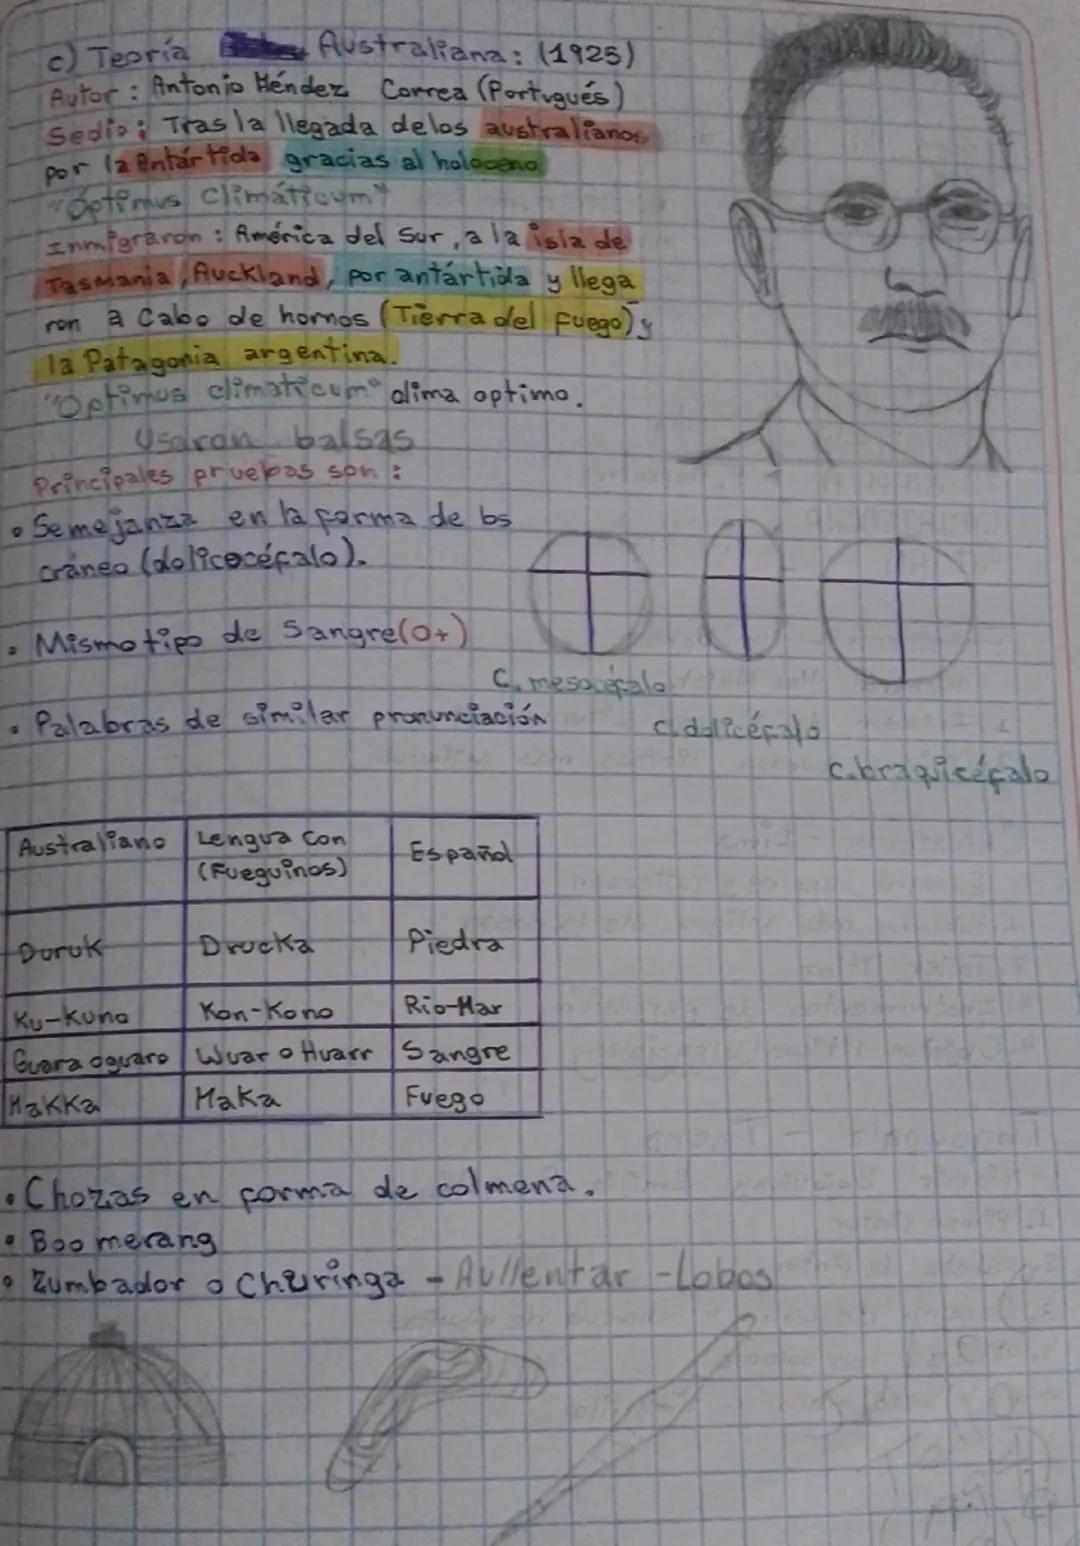 c) Teoría Australiana: (1925)
Autor: Antonio Méndez Correa (Portugués)
Sedio: Tras la llegada delos australianos
por la Antártida gracias al holoceno
"Optimus Climáticum"
Inmigraron: América del Sur, a la isla de
Tasmania, Auckland, por antártida y llega
ron a Cabo de hornos (Tierra del Fuego) y
la Patagonia argentina.
"Optimus climaticum" clima optimo.
Usaron balsas
Principales pruebas son:
• Semejanza en la forma de los
cráneo (dolicocéfalo).
• Mismo tipo de Sangre(O+)
C. mesocéfalo
• Palabras de similar pronunciación
c.dolicéfalo
c.braquicéfalo
Australiano Lengua Con (Fueguinos) Español
Duruk Drucka Piedra
Ku-Kuno Kon-Kono Rio-Mar
Guara oguaro Wuar o Huarr Sangre
Makka Maka Fuego
• Chozas en forma de colmena.
• Boomerang
• Zumbador o Churinga - Aullentar - Lobos